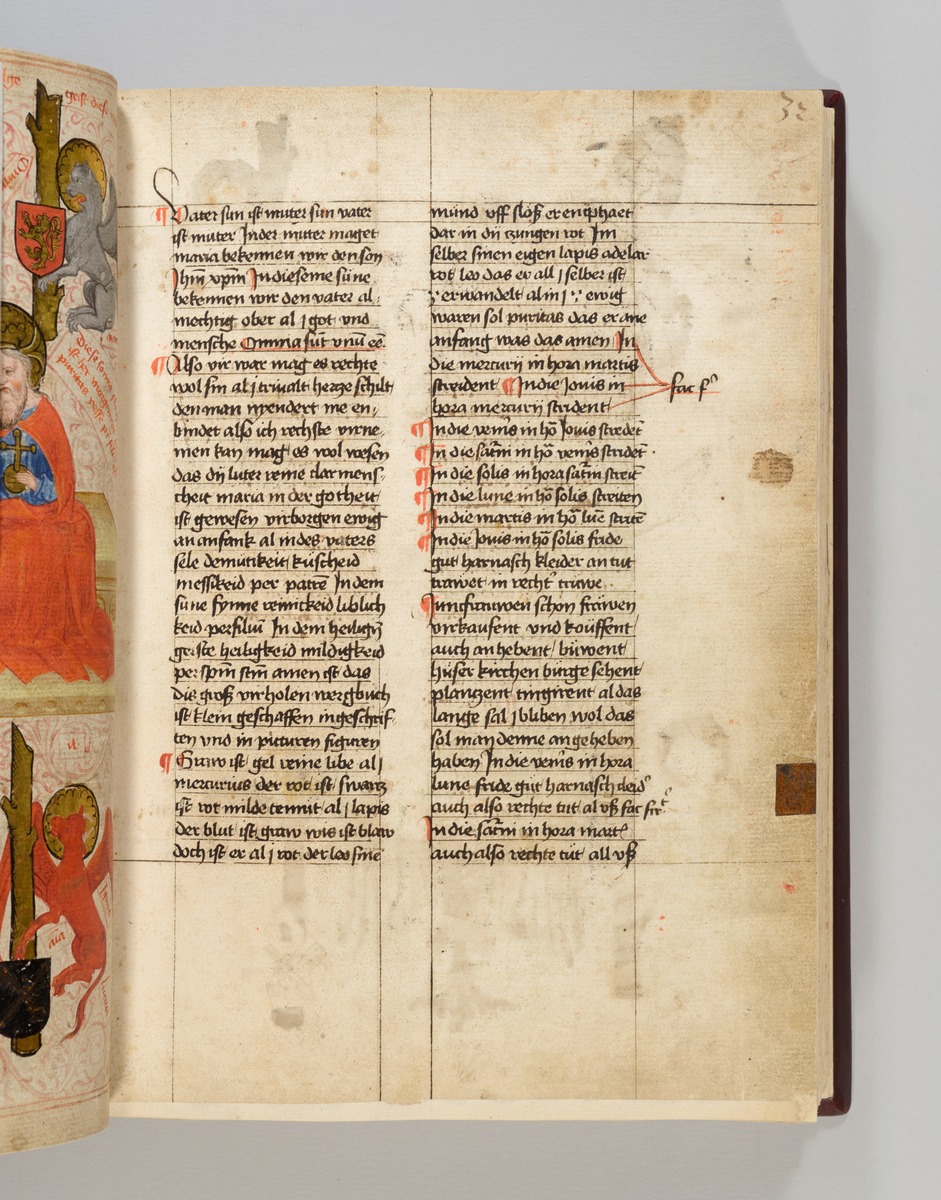 32
¶ Vater sun ist muter sun vater
ist muter Inder muter maget
maria bekennen wir den son
Ihm xpm In dieseme sune
bekennen wir den vater al
mechtig ober al j got vnd
mensche Omnia sut vnu ee
¶ Also vir war mag es rechte
wol sin al j triualt hercze schilt
den man npendert me en,
bindet also ich rechste virne,
men kan mag es wol wesen
das dy luter reine clar mens,
cheit maria in der gotheit
ist gewesen virborgen ewig
an anfank al in des vaters
sele demutikeit kuscheid
messikeid per patre In dem
sune synne reinickeid liblich
keid per filiu In dem heiligy
geiste heiligkeid mildigkeid
per spm stm amen ist das
dis groß virholen wergbuch
ist klein geschaffen ingeschrif,
ten vnd in picturen figuren
¶ Graw ist gel reine libe al j
mercurius der rot ist swarz
ist rot milde temit al j lapis
der blut ist graw wis ist blaw
doch ist er al j rot der leo sine
mund vff sloß er enphaet
dar in dy zungen rot Im
selber sinen eigen lapis adelar
rot leo das er all j selber ist
erwandelt al in j ewig
waren sol puritas das er ane
anfang was das amen In
die mercurij in hora martis
streident ¶ In die Jouis in
hora mercurij strident
fac
¶ In die venis in ho Jouis stredet
¶ In die satni in ho venis stridet
¶ In die solis in hora satni streit
¶ In die lune in ho solis streiten
¶ In die martis in ho lue streite
¶ In die Jouis in ho solis fride
gut harnasch kleider an tut
trawet in recht truwe
¶ Jungfrauwen schon frawen
virkaufent vnd kouffent
auch an hebent buwent
huser kirchen burge sehent
planczent tingirent al das
lange sal j bliben wol das
sol man denne angeheben
haben In die venis in hora
lune fride gut harnasch cleid
auch also rechte tut al vß fac
In die satni in hora mart
auch also rechte tut all vß